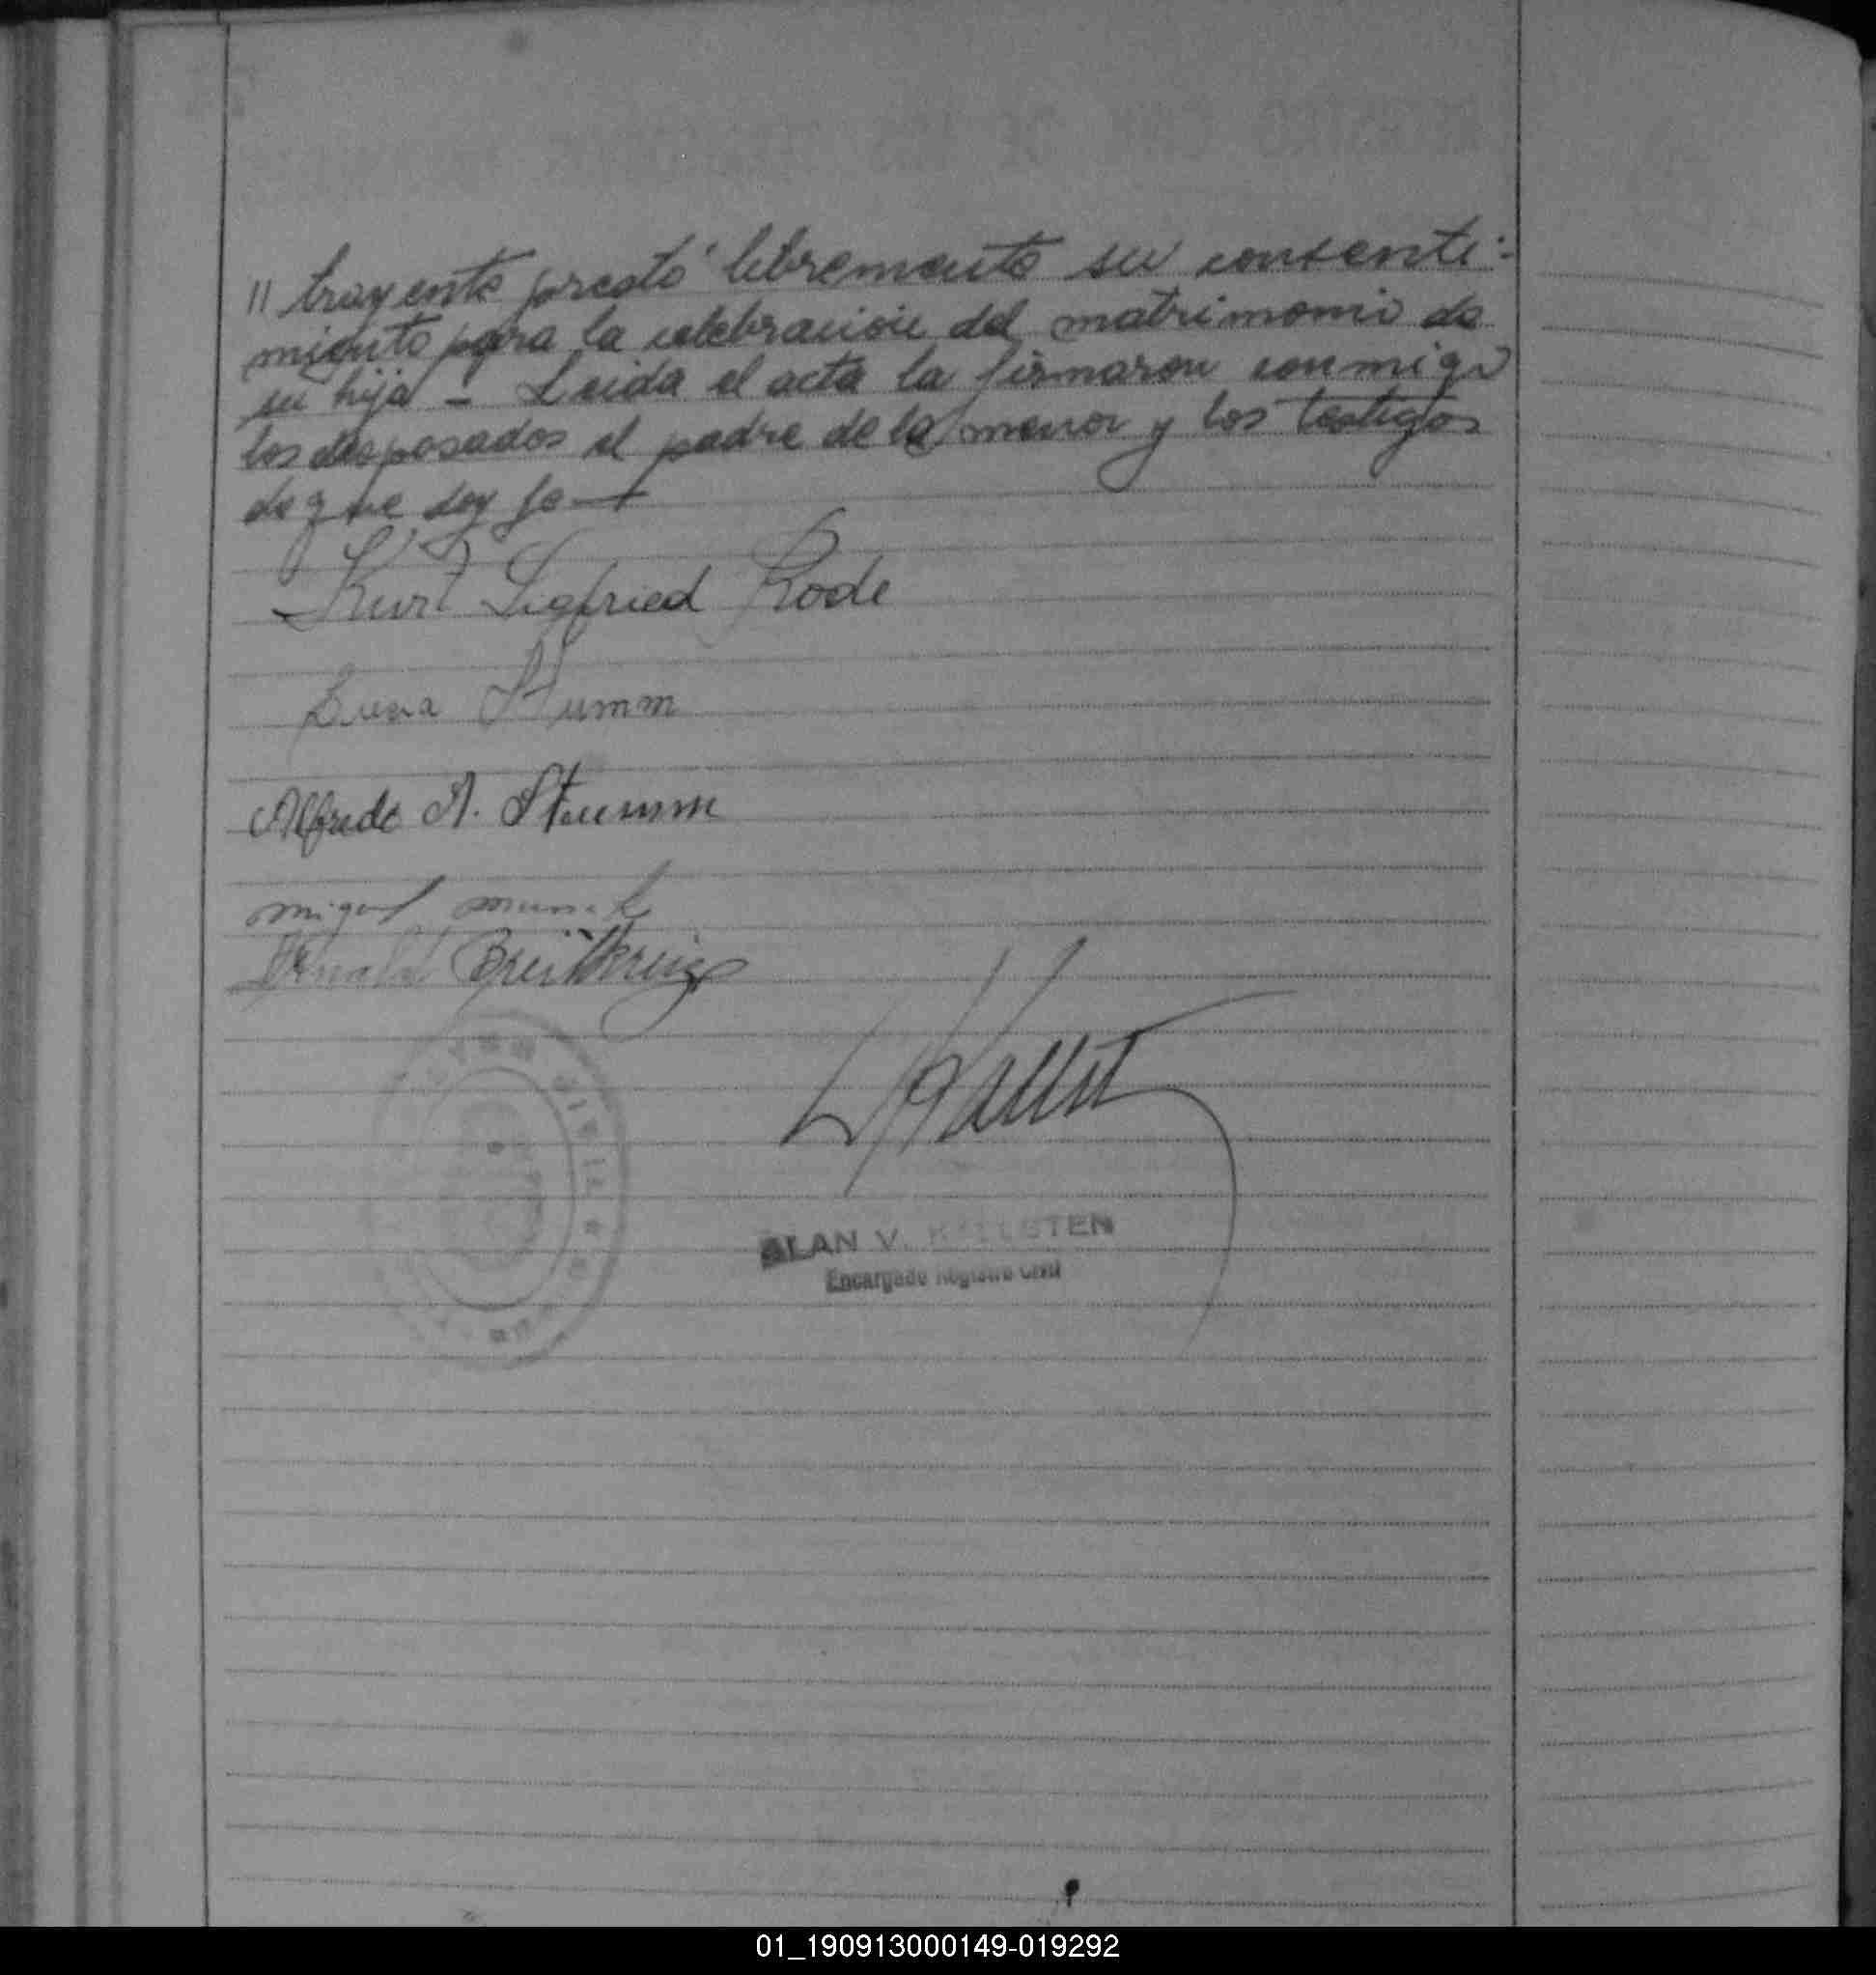 // trayente prestó libremente su consenti-
miento para la celebración del matrimonio de
su hija - Leida el acta la firmaron conmigo
los desposados el padre de la menor y los testigos
de que doy fe—
Kurt Sigfried Rode
Stumm
Alfredo A. Stumm
Miguel
ALAN V. KALLSTEN
Encargado Registro Civil
01_190913000149-019292